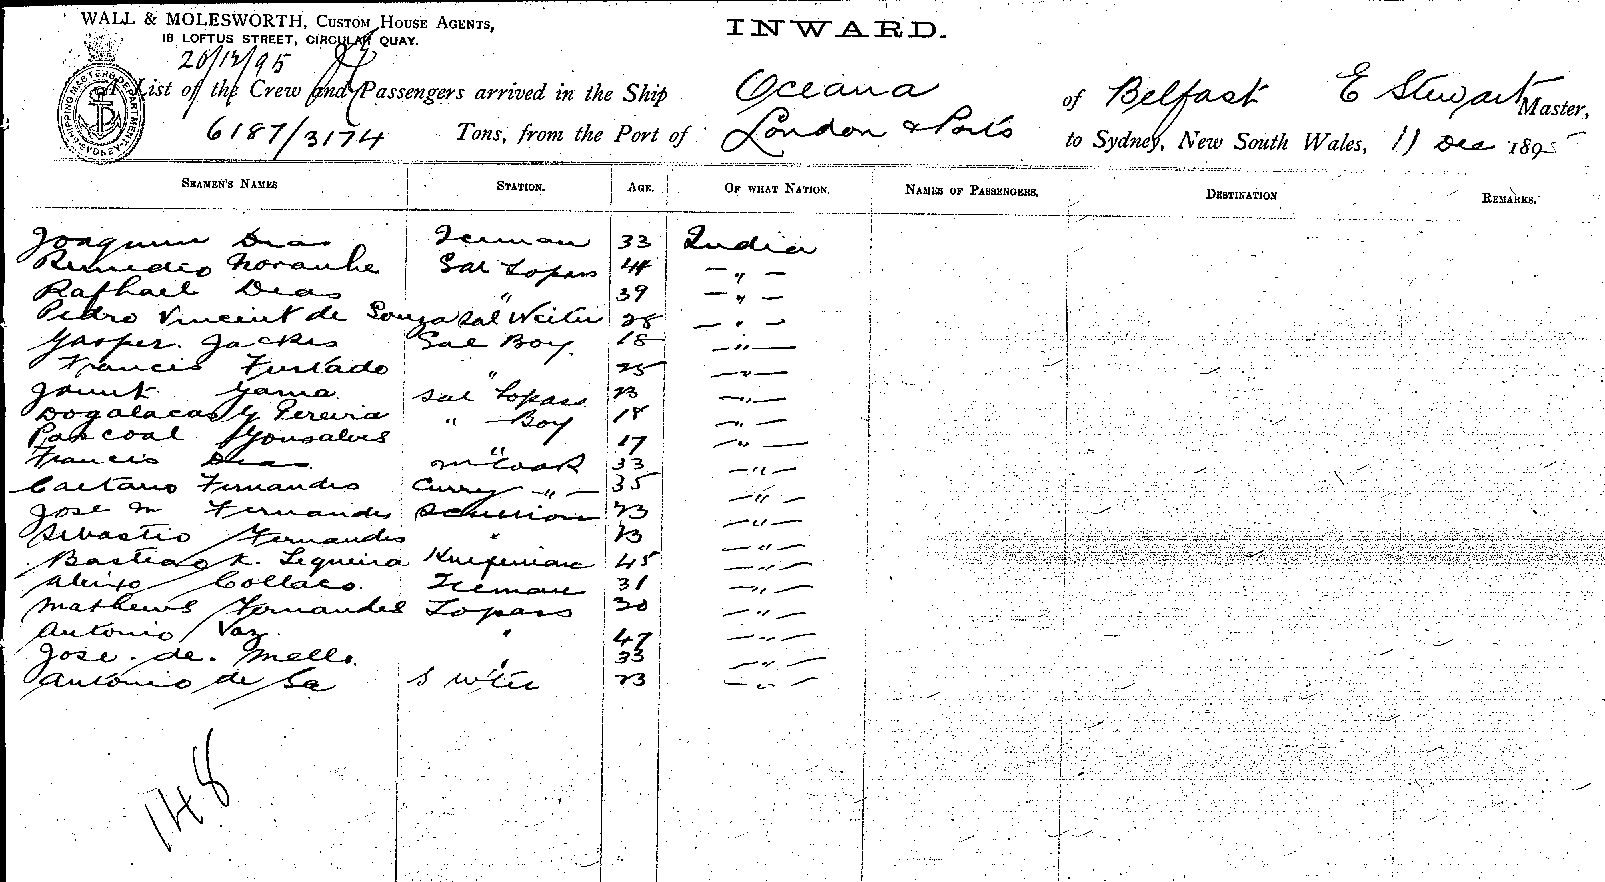 WALL & MOLESWORTH, CUSTOM HOUSE AGENTS,
18 LOFTUS STREET, CIRCULAR QUAY.
INWARD.
20/12/95
A List of the Crew and Passengers arrived in the Ship Oceana of Belfast E Stewart Master,
6187/3174 Tons, from the Port of London & Ports to Sydney, New South Wales, 11 Dec 1895
SEAMEN'S NAMES STATION. AGE. OF WHAT NATION. NAMES OF PASSENGERS. DESTINATION REMARKS.
Joaquim Dias 33 India
Noronha Sal Topass 44 — " —
Raphael Dias " 39 — " —
Pedro Vincent de Souza Sal Writer 28 — " —
Gasper Jackis Sal Boy 18 — " —
Francis Furtado " 25 — " —
Gama Sal Topass 23 — " —
Pereira " Boy 18 — " —
Pascoal Gonsalves " 17 — " —
Francis Dias m Cook 33 — " —
Caetano Fernandes Curry " 35 — " —
Jose M Fernandes Scullion 23 — " —
Sebastio Fernandes " 23 — " —
Bastiao R. Sequeira 45 — " —
Aleixo Collaco 31 — " —
Mathews Fernandes Topass 30 — " —
Antonio Vaz " 47 — " —
Jose de Mello " 33 — " —
Antonio de Sa 23 — " —
148